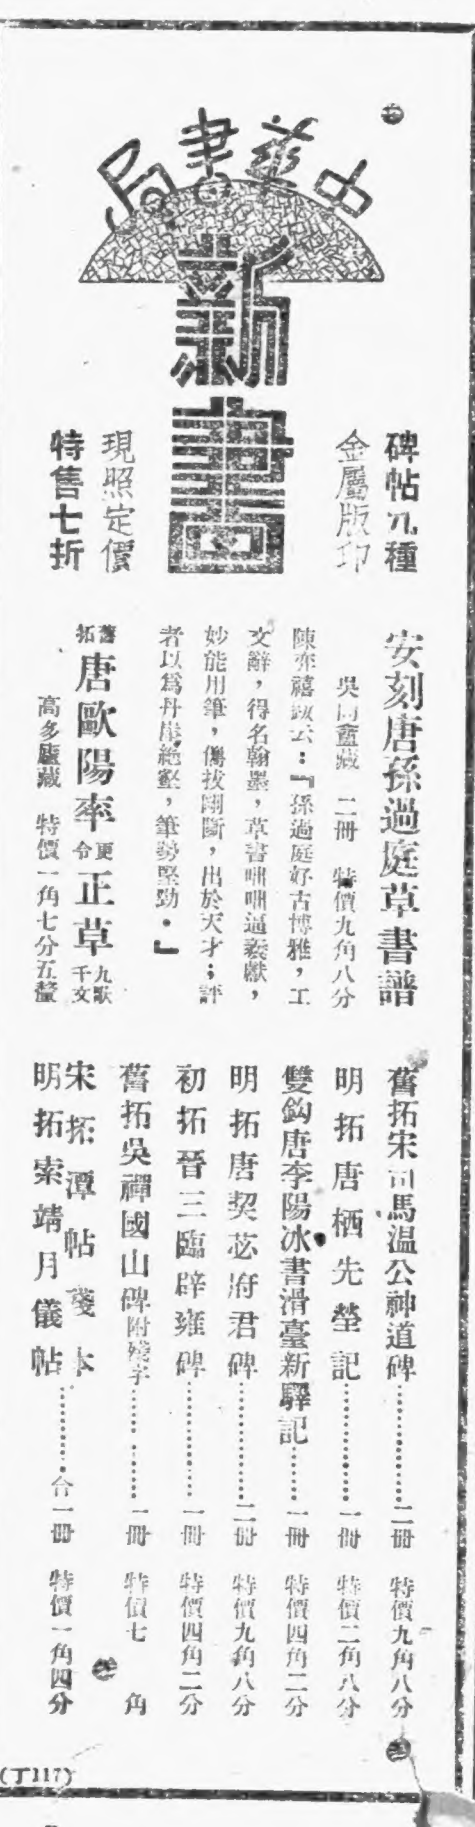 中華書局
新書
碑帖九種
金屬版印
現照定價
特售七折
安刻唐孫過庭草書譜
藏 二冊 特價九角八分
陳亦禧敍云：『孫過庭好古博雅，工
文辭，得名翰墨，草書咄咄逼羲獻，
妙能用筆，儁拔剛斷，出於天才；評
者以爲丹崖絶壑，筆勢堅勁．』
舊拓唐歐陽率更令正草九歌千文
高多廬藏 特價一角七分五釐
舊拓宋司馬温公神道碑…………二冊 特價九角八分
明拓唐栖先塋記…………一冊 特價二角八分
雙鈎唐李陽冰書滑臺新驛記……一冊 特價四角二分
明拓唐契苾府君碑…………二冊 特價九角八分
初拓晉三臨辟雍碑…………一冊 特價四角二分
舊拓吳禪國山碑附殘字…………一冊 特價七角
宋拓潭帖殘本
明拓索靖月儀帖…………合一冊 特價一角四分
(丁117)